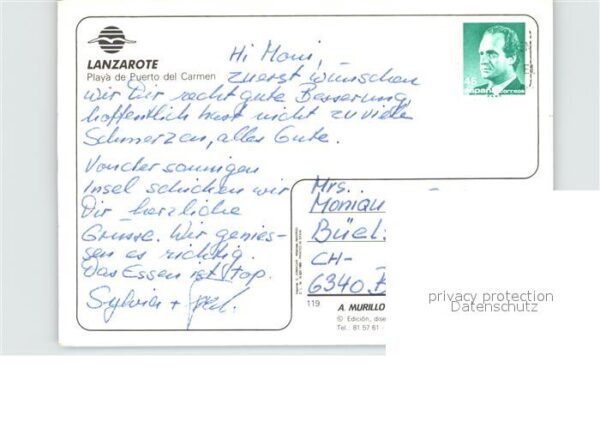 LANZAROTE
Playa de Puerto del Carmen
Hi Moni,
zuerst wünschen
wir Dir recht gute Besserung,
hoffentlich hast nicht zu viele
Schmerzen, alles Gute.
Von der sonnigen
Insel schicken wir
Dir herzliche
Grüsse. Wir genies-
sen es richtig.
Das Essen ist top.
Sylvia +
45
España correos
Mrs.
Büel
CH-
6340
119
A. MURILLO
© Edición,
Tel.: 81 57 61
privacy protection
Datenschutz